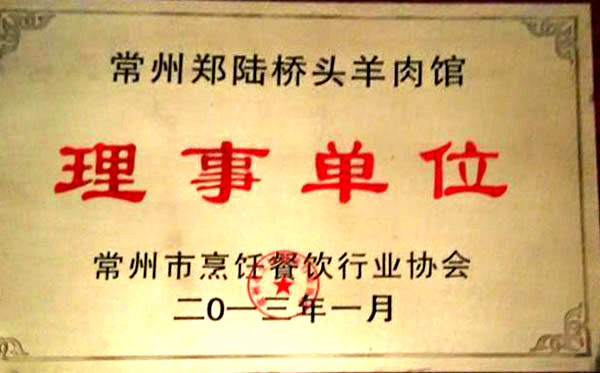 常州郑陆桥头羊肉馆
理事单位
常州市烹饪餐饮行业协会
二0一三年一月